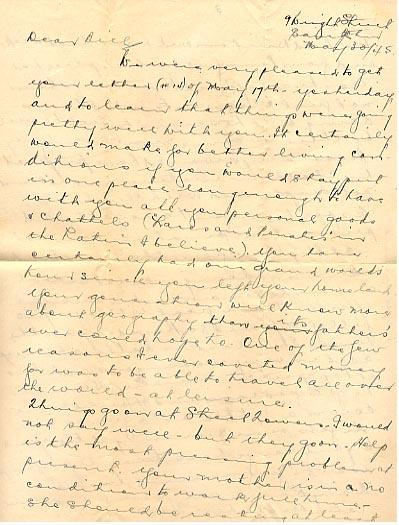 9 Dwight Street
May 30/45
Dear Bill
We were very pleased to get
your letter (#10) of May 17th - yesterday
and to learn that things were going
pretty well with you. It certainly
would make for better living con
ditions if you would stay put
in one place long enough to have
with you all your personal goods
& chattels (Lares and Penates in
the Latin I believe). You have
certainly had one grand world's
tour since you left your homeland
Your generation will know more
about geography than your fathers
ever could hope to. One of the few
reasons I ever coveted money
for was to be able to travel all over
the world - at leisure.
Things go on at Steel Towers. I would
not say well - but they go on. Help
is the most pressing problem at
present. Your mother is in no
condition to work full time.
She should be resting at least